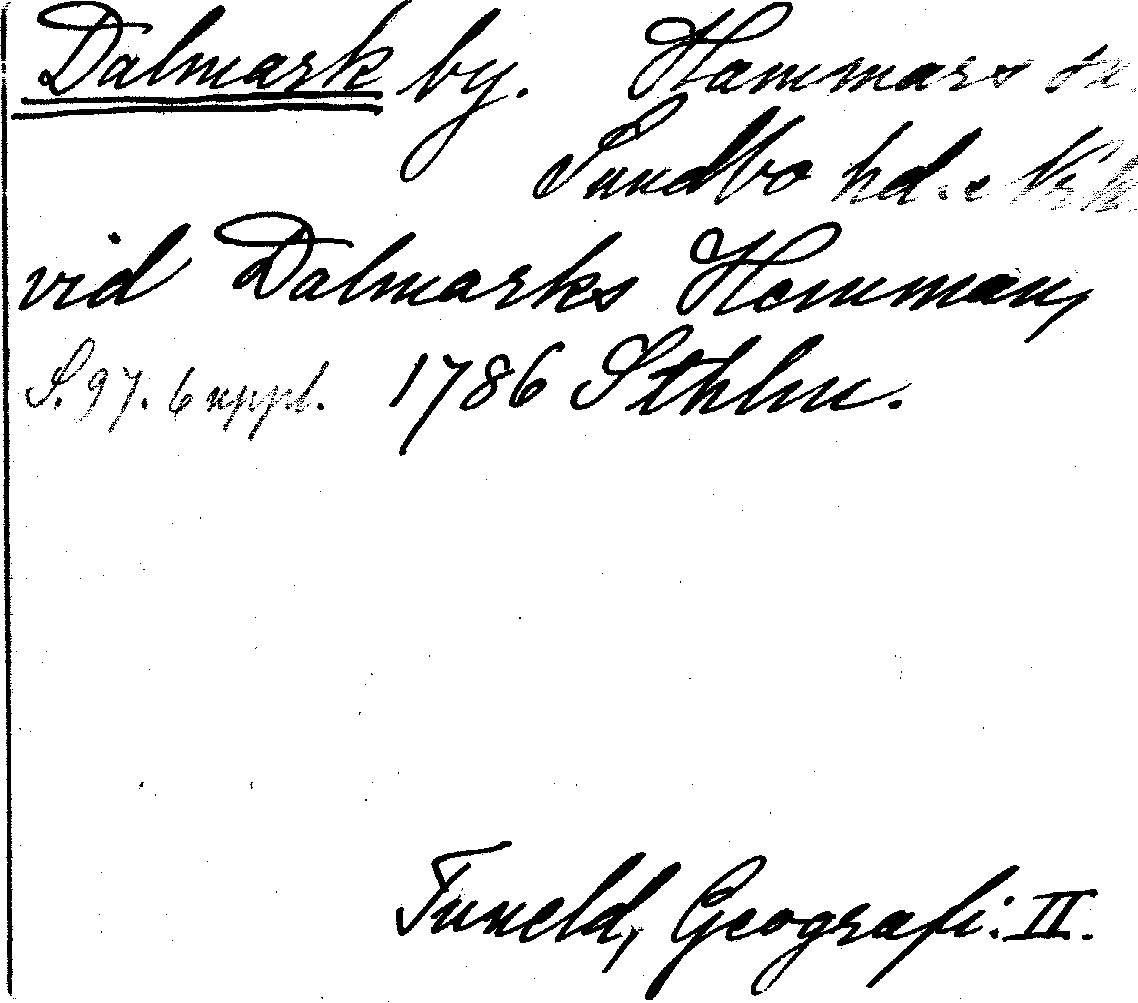 Dalmark by. Hammars sn.
Sundbo hd. Nrk.
vid Dalmarks Hemman,
S. 97. 6 uppl. 1786 Sthlm.
Tuneld, Geografi. II.